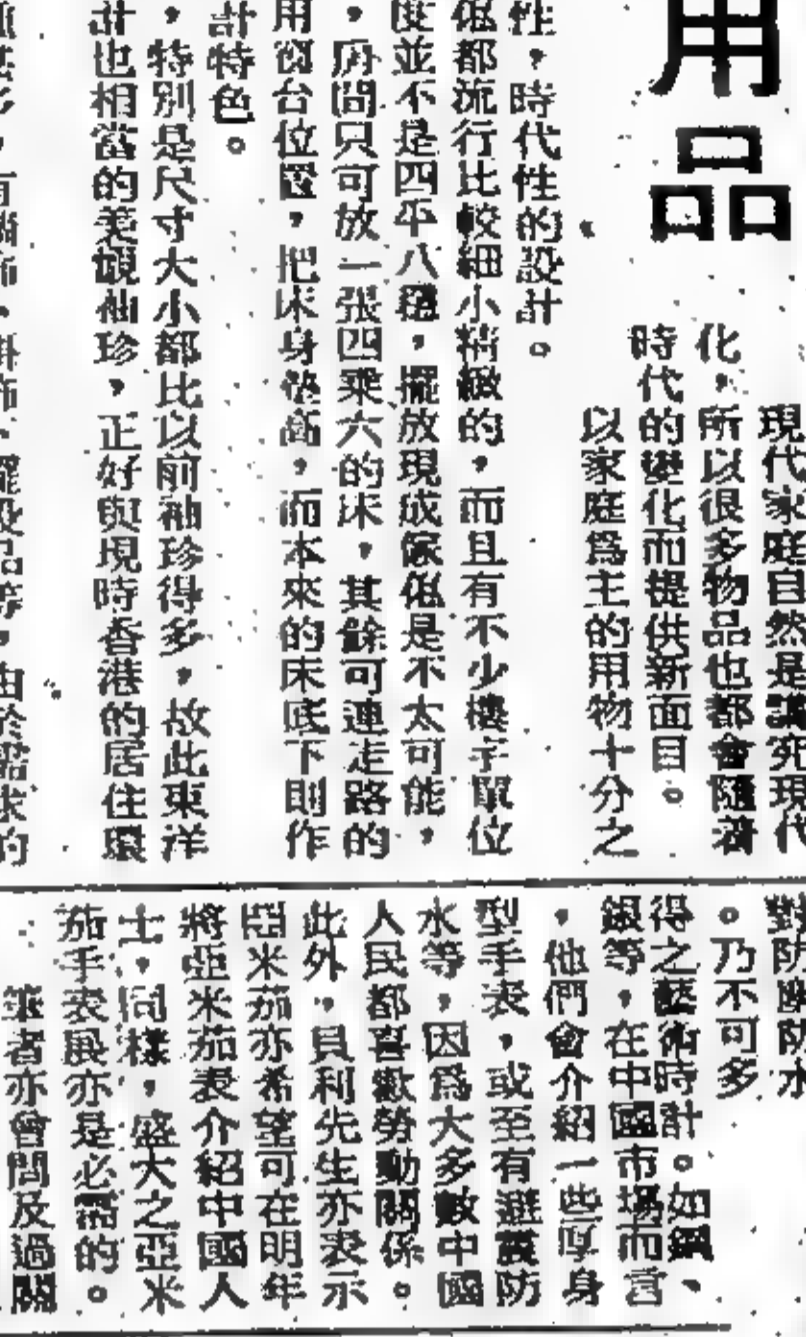 用品
現代家庭自然是講究現代
化，所以很多物品也都會隨著
時代的變化而提供新面目。
以家庭爲主的用物十分之
性，時代性的設計。
俬都流行比較細小精緻的，而且有不少樓宇單位
度並不是四平八穩，擺放現成傢俬是不太可能，
，房間只可放一張四乘六的床，其餘可連走路的
用窗台位置，把床身墊高，而本來的床底下則作
計特色。
，特別是尺寸大小都比以前袖珍得多，故此東洋
計也相當的美觀袖珍，正好與現時香港的居住環
擺設品等，由於需求的
對防塵防水
。乃不可多
得之藝術時計。如鋼、
銀等，在中國市場而言
，他們會介紹一些厚身
型手表，或至有避震防
水等，因爲大多數中國
人民都喜歡勞動關係。
此外，貝利先生亦表示
亞米茄亦希望可在明年
將亞米茄表介紹中國人
士，同樣，盛大之亞米
茄手表展亦是必需的。
筆者亦曾問及過關